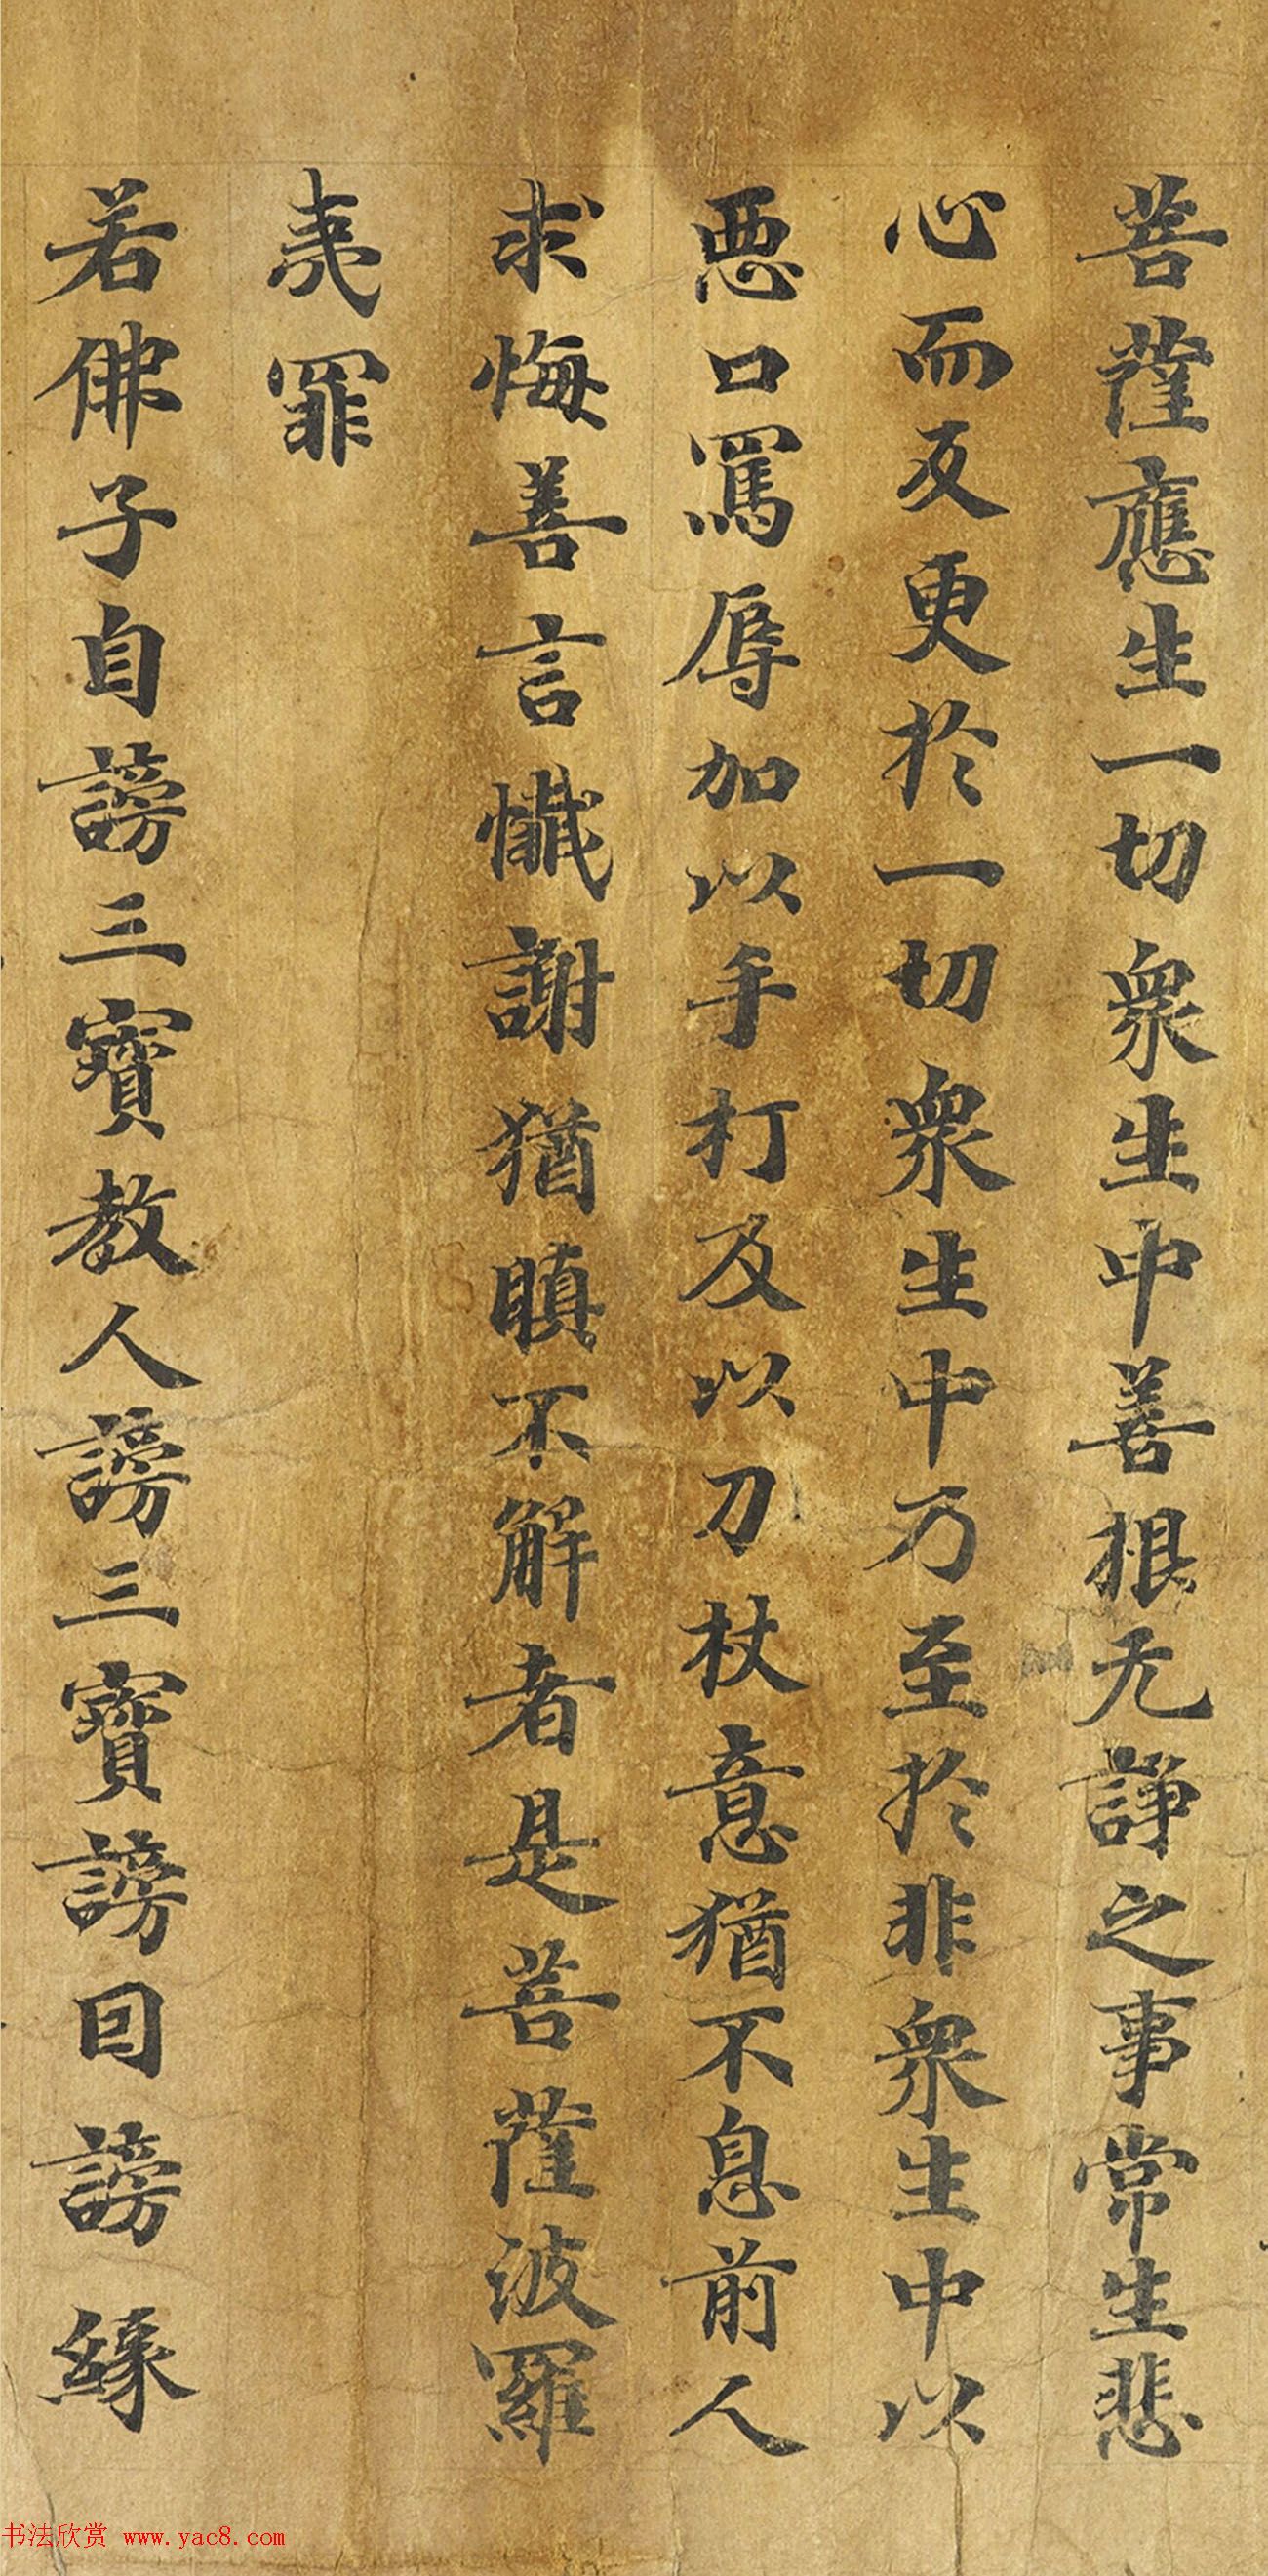 菩薩應生一切衆生中善根无諍之事常生悲
心而反更於一切衆生中乃至於非衆生中以
惡口罵辱加以手打及以刀杖意猶不息前人
求悔善言懺謝猶瞋不解者是菩薩波羅
夷罪
若佛子自謗三寶教人謗三寶謗因謗緣
书法欣赏 www.yac8.com